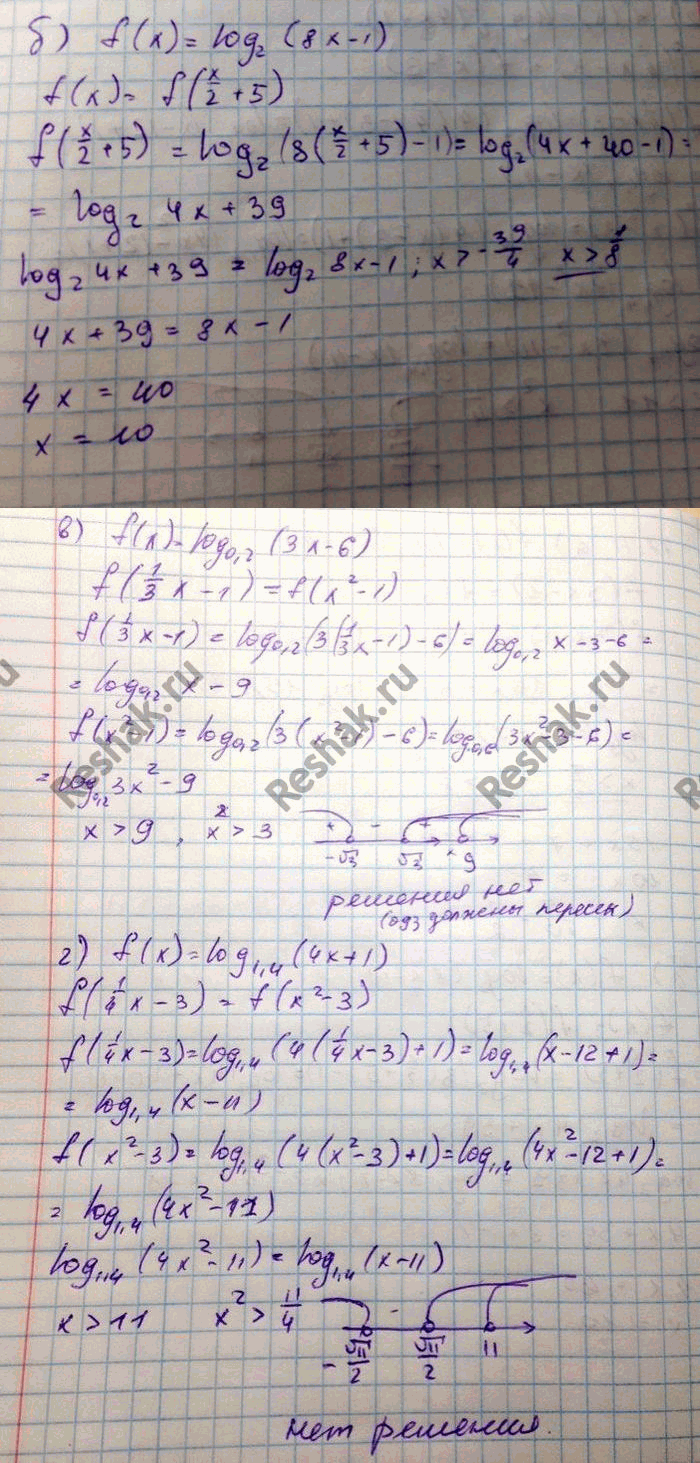 б) f(x) = log₂ (8x-1)
f(x) = f(x/2 + 5)
f(x/2 + 5) = log₂ (8(x/2 + 5) - 1) = log₂ (4x + 40 - 1) =
= log₂ 4x + 39
log₂ 4x + 39 = log₂ 8x - 1 ; x > - 39/4 x > 1/8
4x + 39 = 8x - 1
4x = 40
x = 10
в) f(x) = log₀,₂ (3x - 6)
f(1/3 x - 1) = f(x² - 1)
f(1/3 x - 1) = log₀,₂ (3(1/3 x - 1) - 6) = log₀,₂ x - 3 - 6 =
= log₀,₂ x - 9
f(x² - 1) = log₀,₂ (3(x² - 1) - 6) = log₀,₆ (3x² - 3 - 6) =
= log₀,₂ 3x² - 9
x > 9 , x² > 3 + - +
-√3 √3 9
решения нет
(одз должены пересы)
г) f(x) = log₁,₄ (4x + 1)
f(1/4 x - 3) = f(x² - 3)
f(1/4 x - 3) = log₁,₄ (4(1/4 x - 3) + 1) = log₁,₄ (x - 12 + 1) =
= log₁,₄ (x - 11)
f(x² - 3) = log₁,₄ (4(x² - 3) + 1) = log₁,₄ (4x² - 12 + 1) =
= log₁,₄ (4x² - 11)
log₁,₄ (4x² - 11) = log₁,₄ (x - 11)
x > 11 x² > 11/4 -
- √11/2 √11/2 11
нет решения.
Reshak.ru
Reshak.ru
Reshak.ru